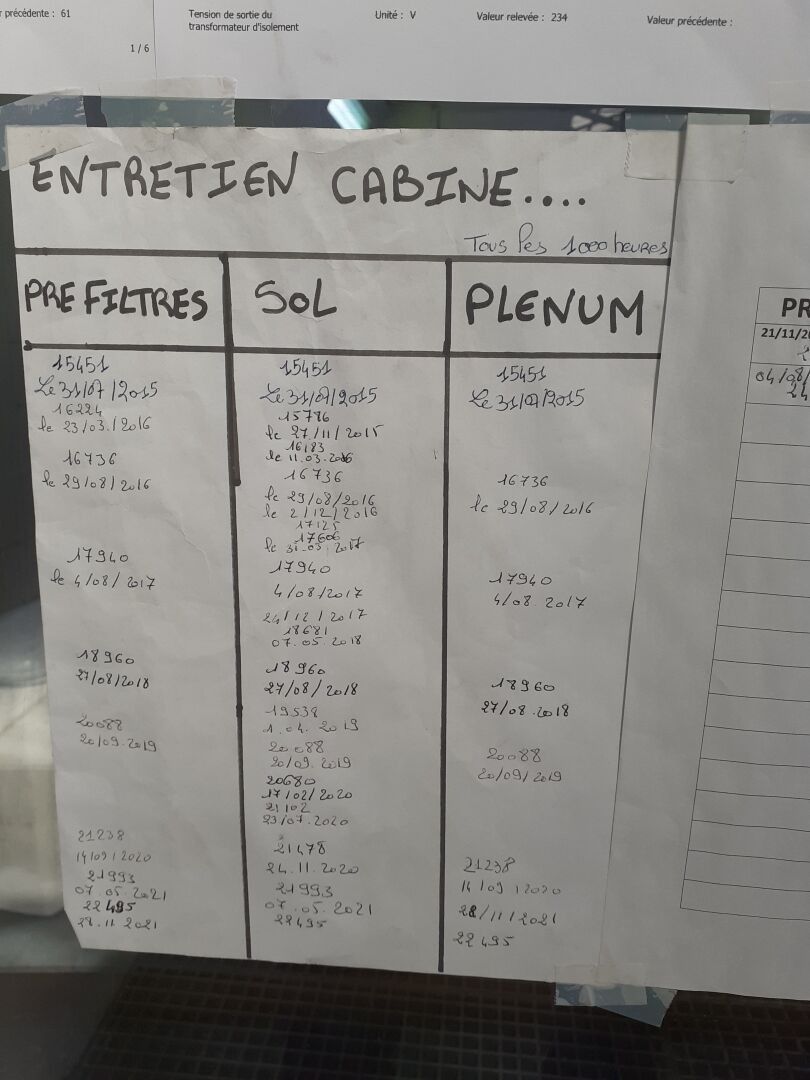 r précédente : 61
Tension de sortie du
transformateur d'isolement
Unité : V
Valeur relevée : 234
Valeur précédente :
1 / 6
ENTRETIEN CABINE....
Tous les 1000 heures
PREFILTRES
15451
Le 31/07/2015
16224
le 23/03/2016
16736
le 29/08/2016
17940
le 4/08/2017
18960
27/08/2018
20088
20/09.2019
21238
14/09/2020
21993
07.05.2021
22495
28.11.2021
SOL
15451
Le 31/07/2015
15776
le 27/11/2015
16183
le 11.03.2016
16736
le 29/08/2016
le 2/12/2016
17125
17606
le 31.03.2017
17940
4/08/2017
24/12/2017
18681
07.05.2018
18960
27/08/2018
19538
1.04.2019
20088
20/09.2019
20680
17/02/2020
21102
23/07.2020
21478
24.11.2020
21993
07.05.2021
22495
PLENUM
15451
Le 31/07/2015
16736
le 29/08/2016
17940
4/08.2017
18960
27/08.2018
20088
20/09/2019
21238
14/09/2020
28/11/2021
22495
PR
21/11/2
04/08/
24